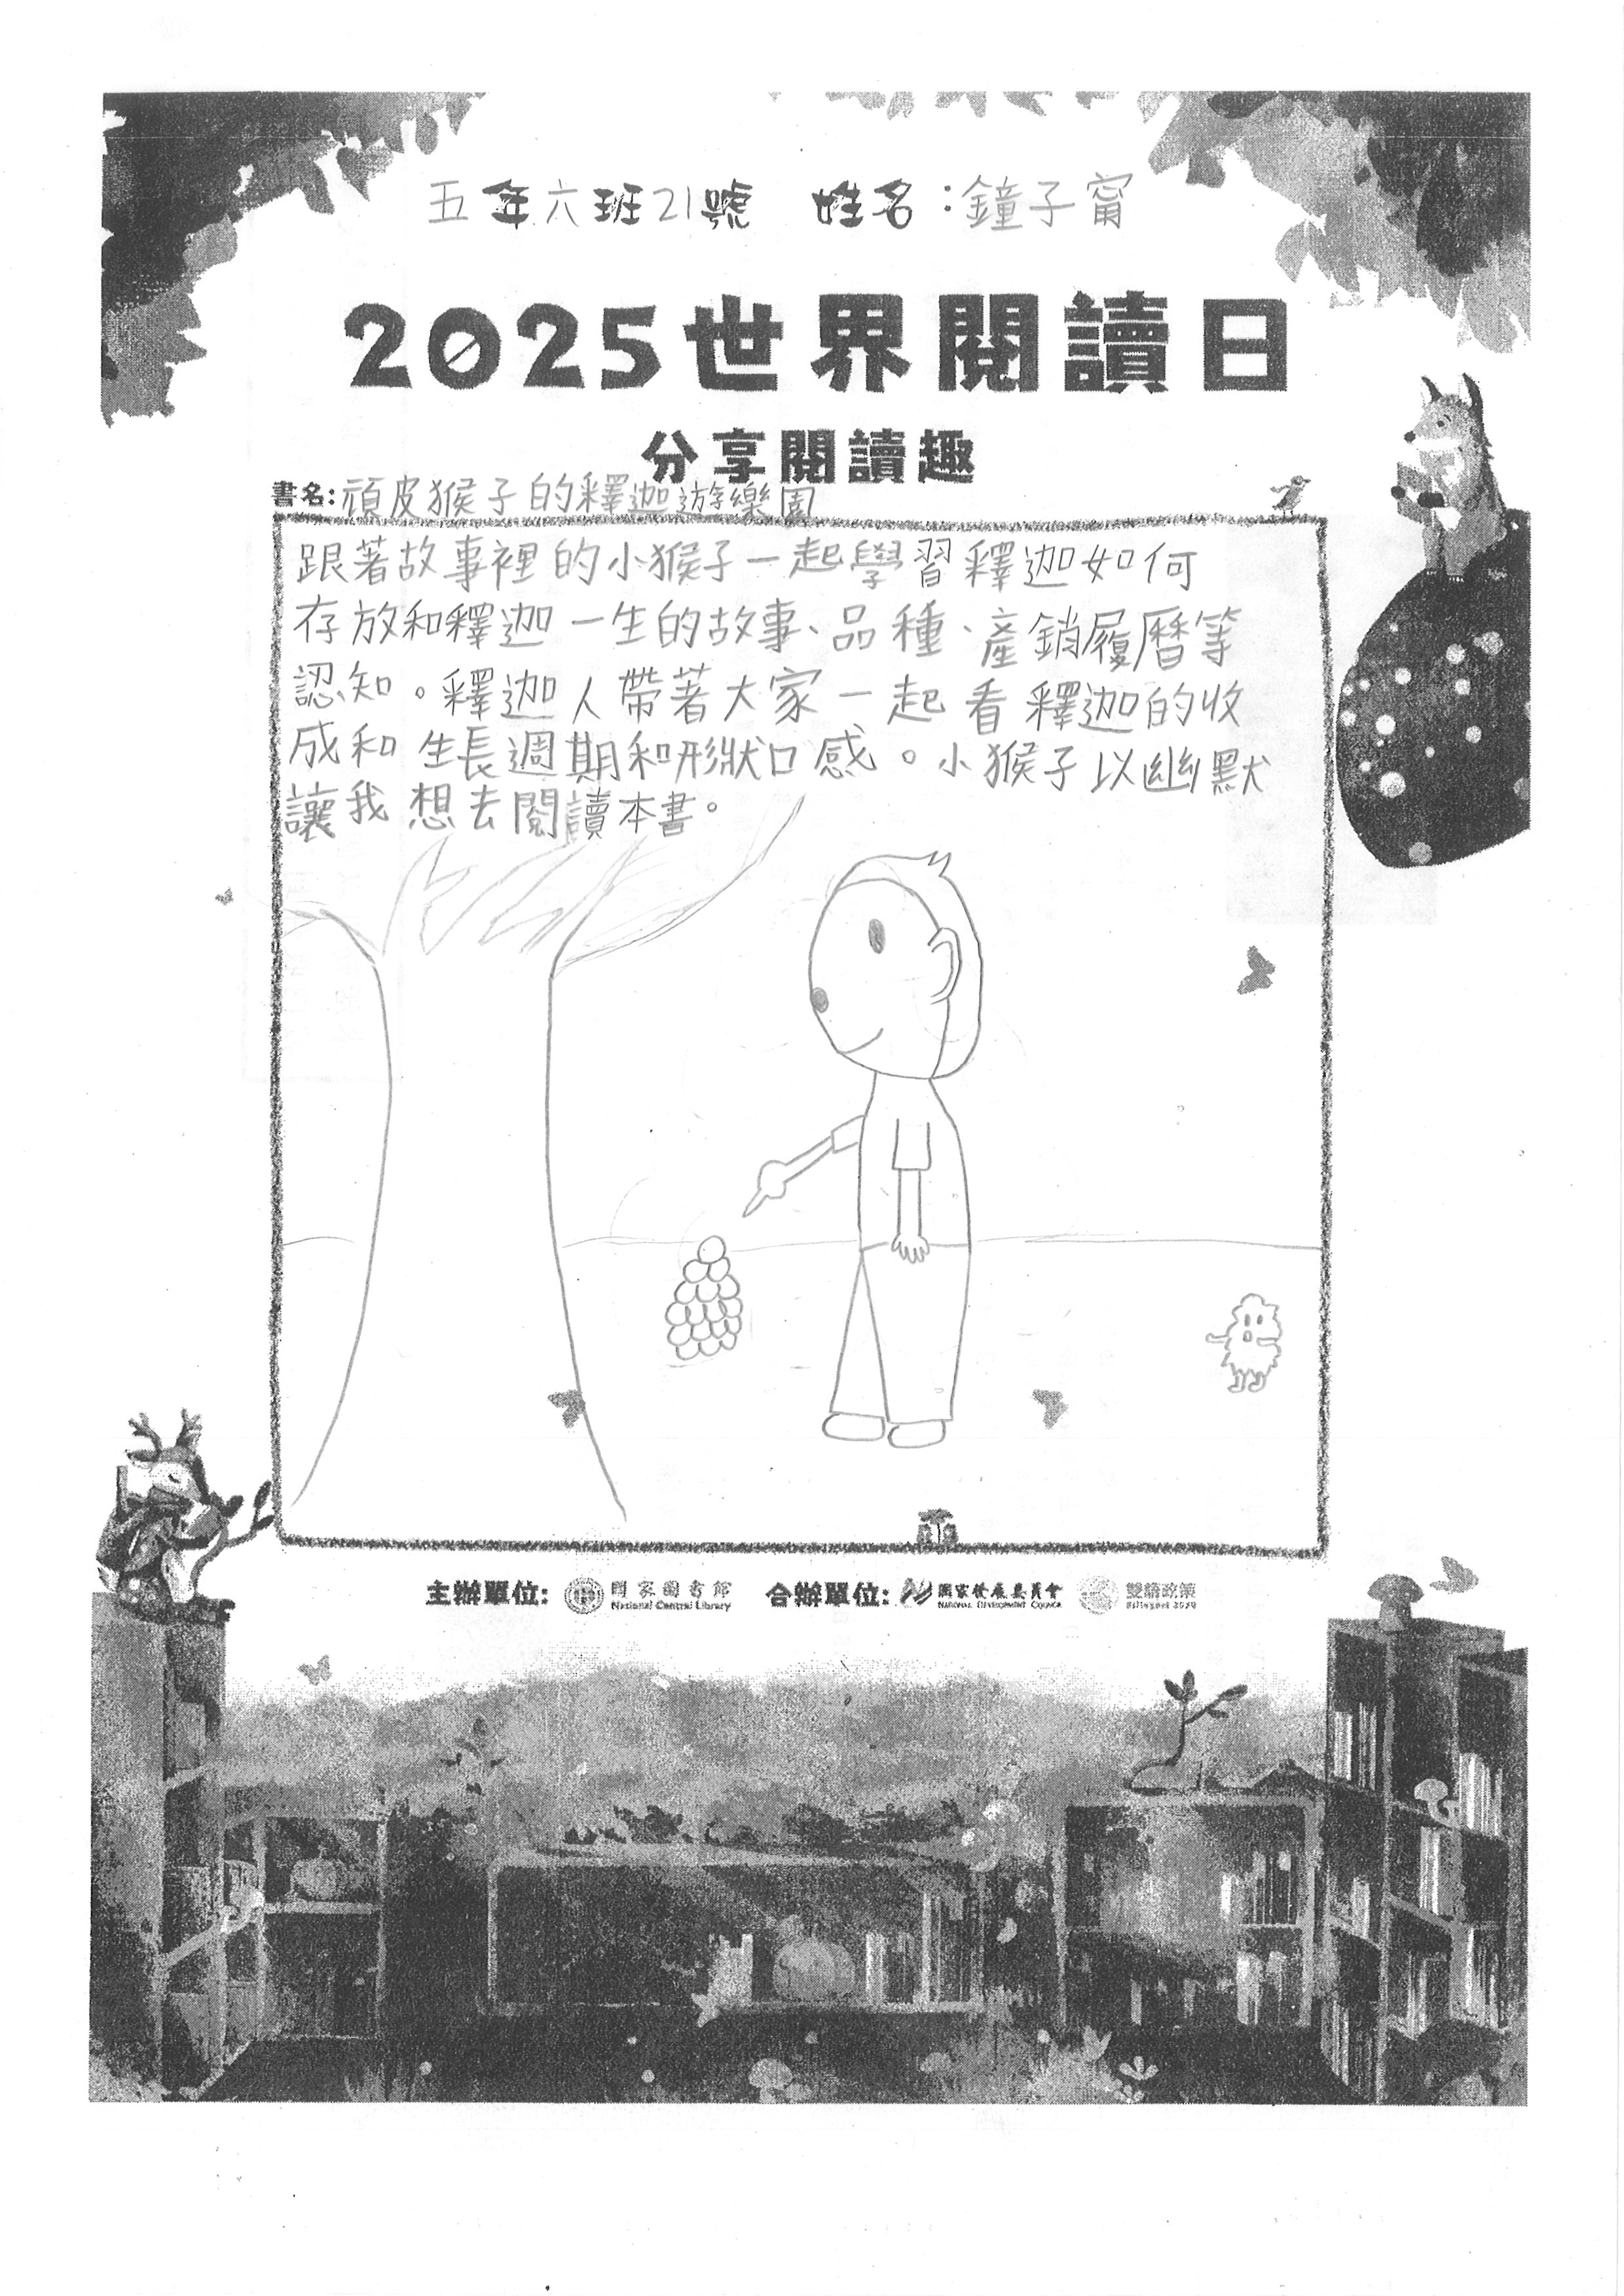 五年六班21號 姓名：鐘子甯
2025世界閱讀日
分享閱讀趣
書名:頑皮猴子的釋迦遊樂園
跟著故事裡的小猴子一起學習釋迦如何
存放和釋迦一生的故事、品種、產銷履曆等
認知。釋迦人帶著大家一起看釋迦的收
成和生長週期和形狀口感。小猴子以幽默
讓我想去閱讀本書。
主辦單位: 國家圖書館 National Central Library 合辦單位: 國家發展委員會 NATIONAL DEVELOPMENT COUNCIL 雙語政策 Bilingual 2030